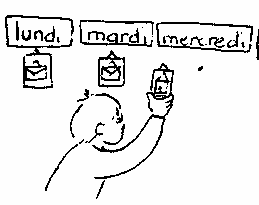 lundi mardi mercredi